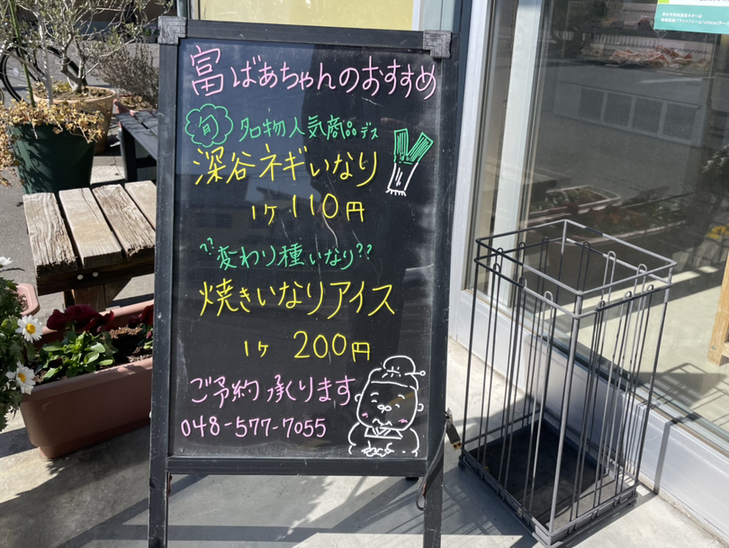 富ばあちゃんのおすすめ
旬 名物人気商品デス
深谷ネギいなり
1ケ 110円
??変わり種いなり??
焼きいなりアイス
1ケ 200円
ご予約承ります
048-577-7055